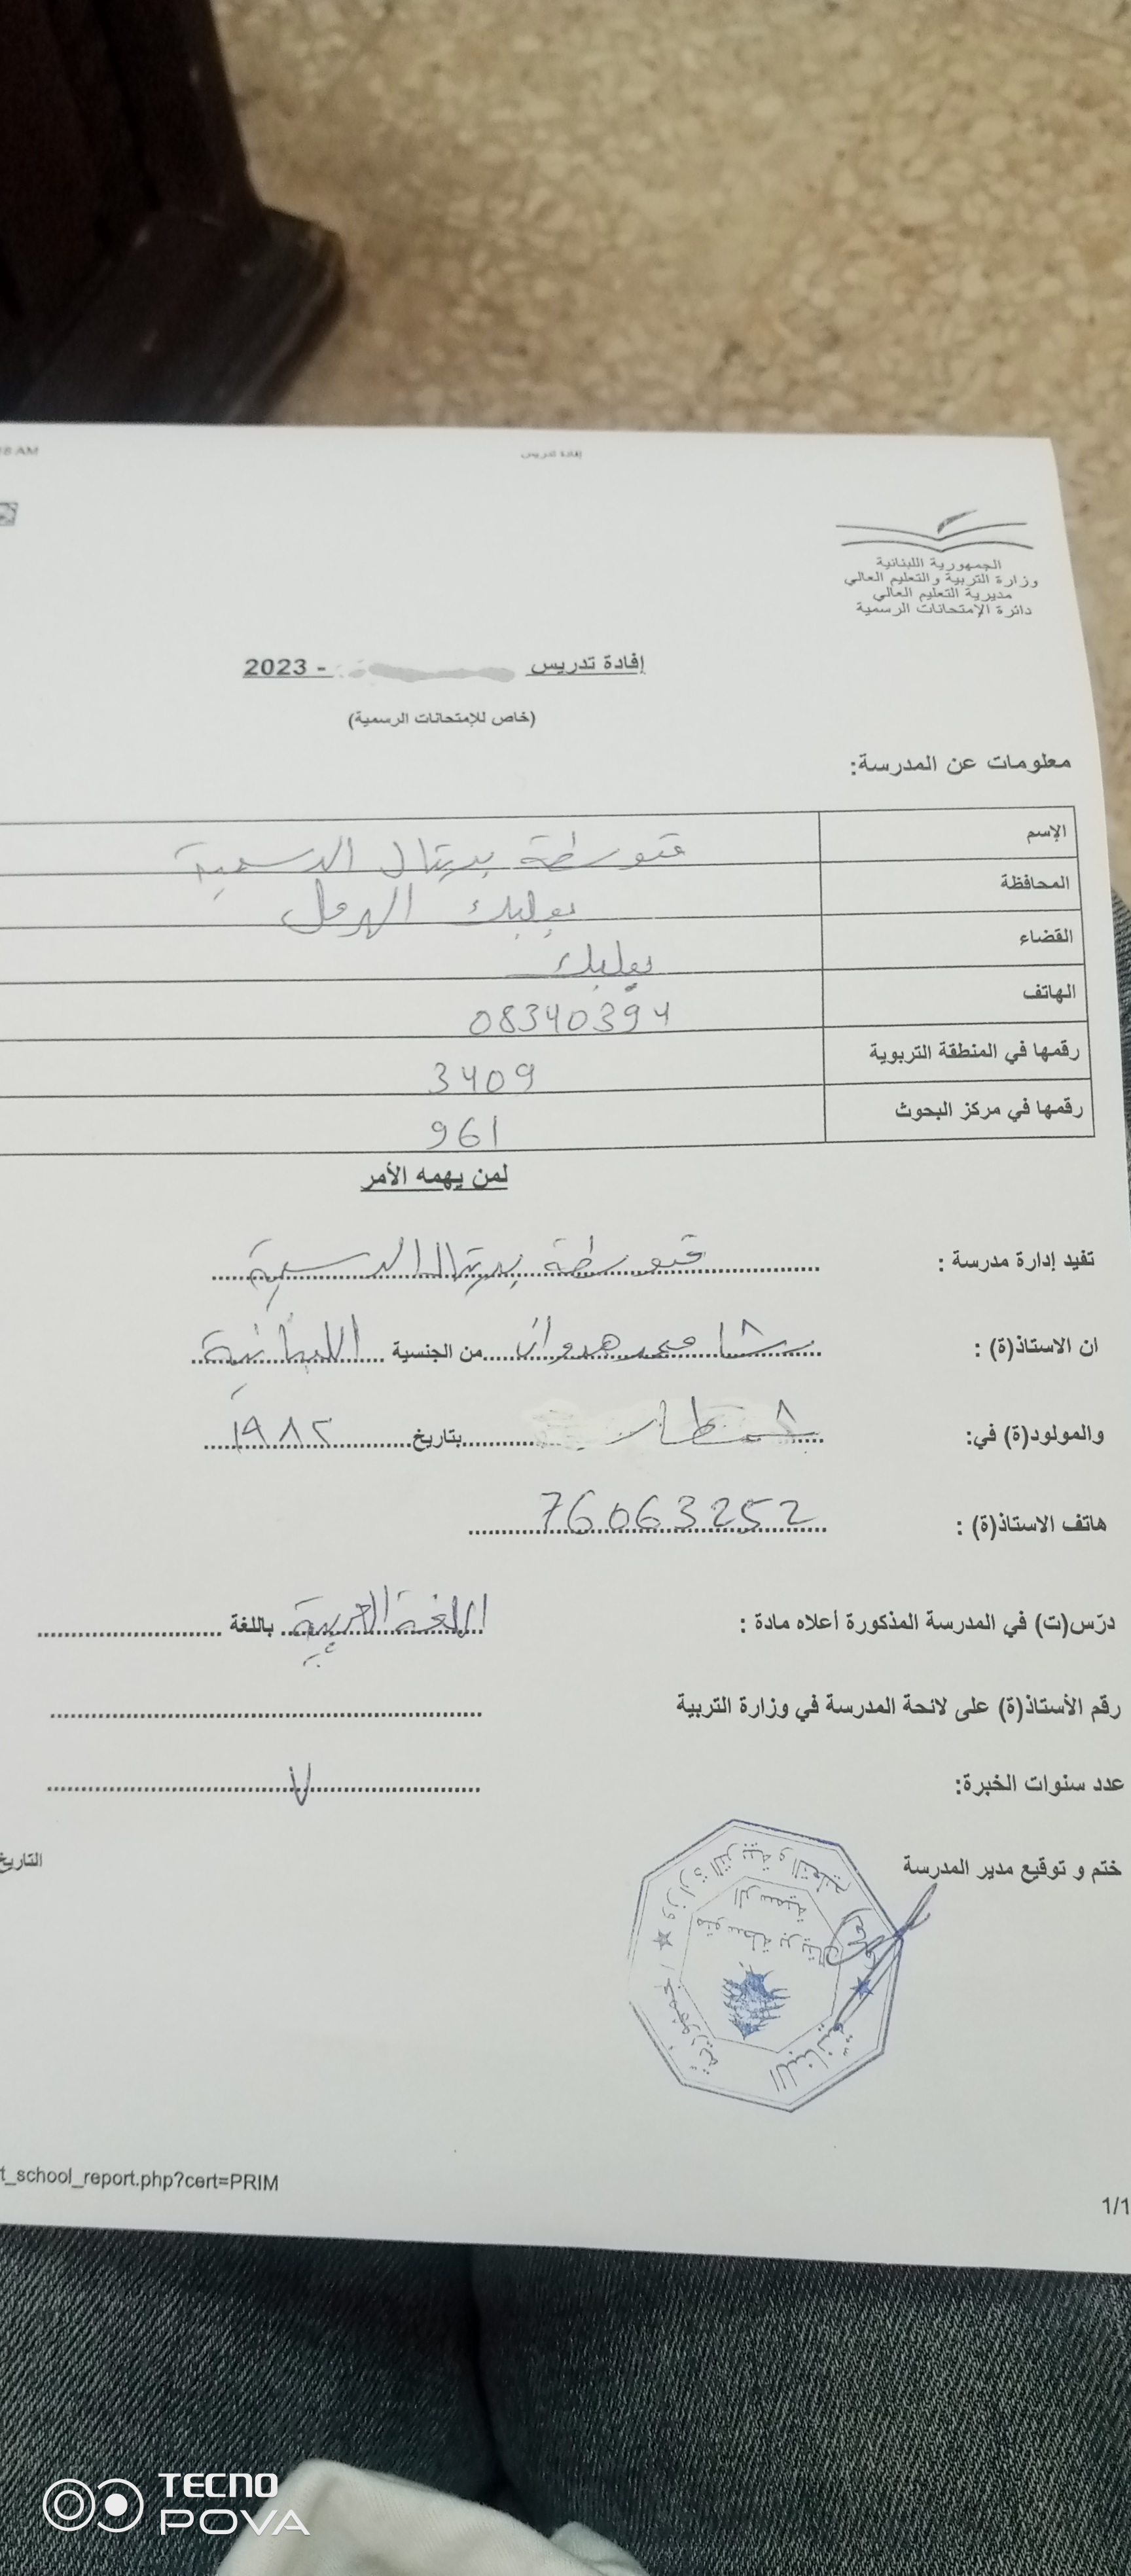 إفادة تدريس
الجمهورية اللبنانية
وزارة التربية والتعليم العالي
مديرية التعليم العالي
دائرة الإمتحانات الرسمية
إفادة تدريس - 2023
(خاص للإمتحانات الرسمية)
معلومات عن المدرسة:
الإسم متوسطة بريتال الرسمية
المحافظة بعلبك الهرمل
القضاء بعلبك
الهاتف 08340394
رقمها في المنطقة التربوية 3409
رقمها في مركز البحوث 961
لمن يهمه الأمر
تفيد إدارة مدرسة : متوسطة بريتال الرسمية
ان الاستاذ(ة) : رشا محمد من الجنسية اللبنانية
والمولود(ة) في: شمسطار بتاريخ ١٩٨٢
هاتف الاستاذ(ة) : 76063252
درّس(ت) في المدرسة المذكورة أعلاه مادة : اللغة العربية باللغة
رقم الأستاذ(ة) على لائحة المدرسة في وزارة التربية
عدد سنوات الخبرة: ٧
ختم و توقيع مدير المدرسة
التاريخ
الجمهورية اللبنانية
وزارة التربية والتعليم
متوسطة بريتال
الرسمية
t_school_report.php?cert=PRIM
1/1
TECNO
POVA